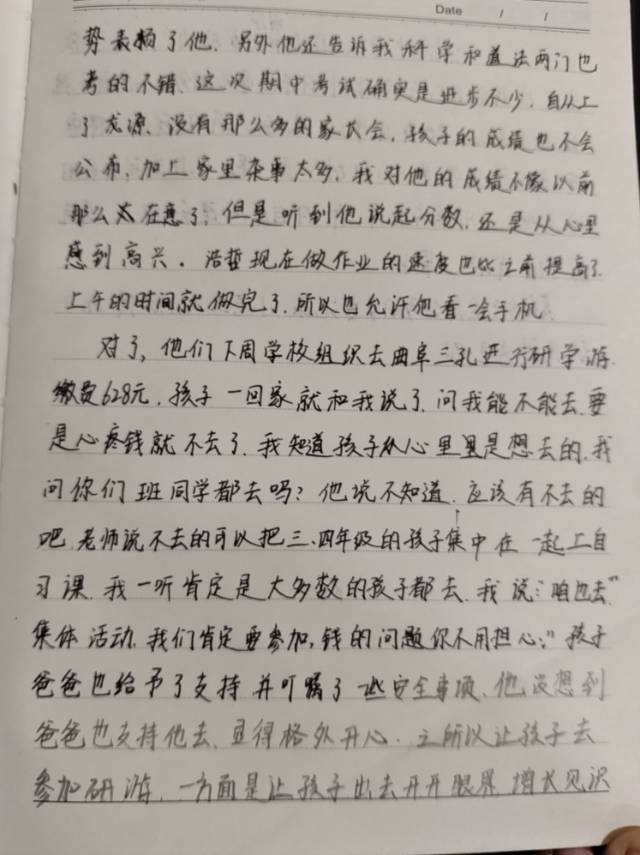 Date / /
势表扬了他.另外他还告诉我科学和道法两门也
考的不错、这次期中考试确实是进步不少.自从上
了龙源、没有那么多的家长会,孩子的成绩也不会
公布,加上家里杂事太多,我对他的成绩不像以前
那么太在意了,但是听到他说起分数,还是从心里
感到高兴.浩哲现在做作业的速度也比之前提高了
上午的时间就做完了.所以也允许他看一会手机
对了,他们下周学校组织去曲阜三孔进行研学游.
缴费628元,孩子一回家就和我说了.问我能不能去.要
是心疼钱就不去了.我知道孩子从心里里是想去的.我
问你们班同学都去吗?他说不知道.应该有不去的
吧.老师说不去的可以把三、四年级的孩子集中在一起上自
习课.我一听肯定是大多数的孩子都去.我说:"咱也去"
集体活动.我们肯定要参加,钱的问题你不用担心;"孩子
爸爸也给予了支持并叮嘱了一些安全事项、他没想到
爸爸也支持他去.显得格外开心.之所以让孩子去
参加研游、一方面是让孩子出去开开眼界.增长见识